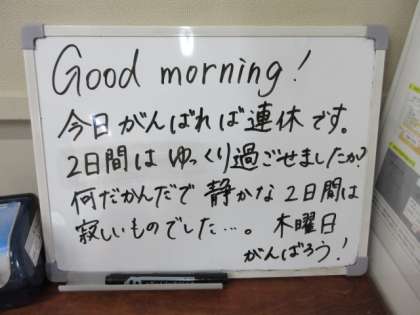 Good morning!
今日がんばれば連休です。
2日間はゆっくり過ごせましたか?
何だかんだで静かな2日間は
寂しいものでした…。木曜日
がんばろう!